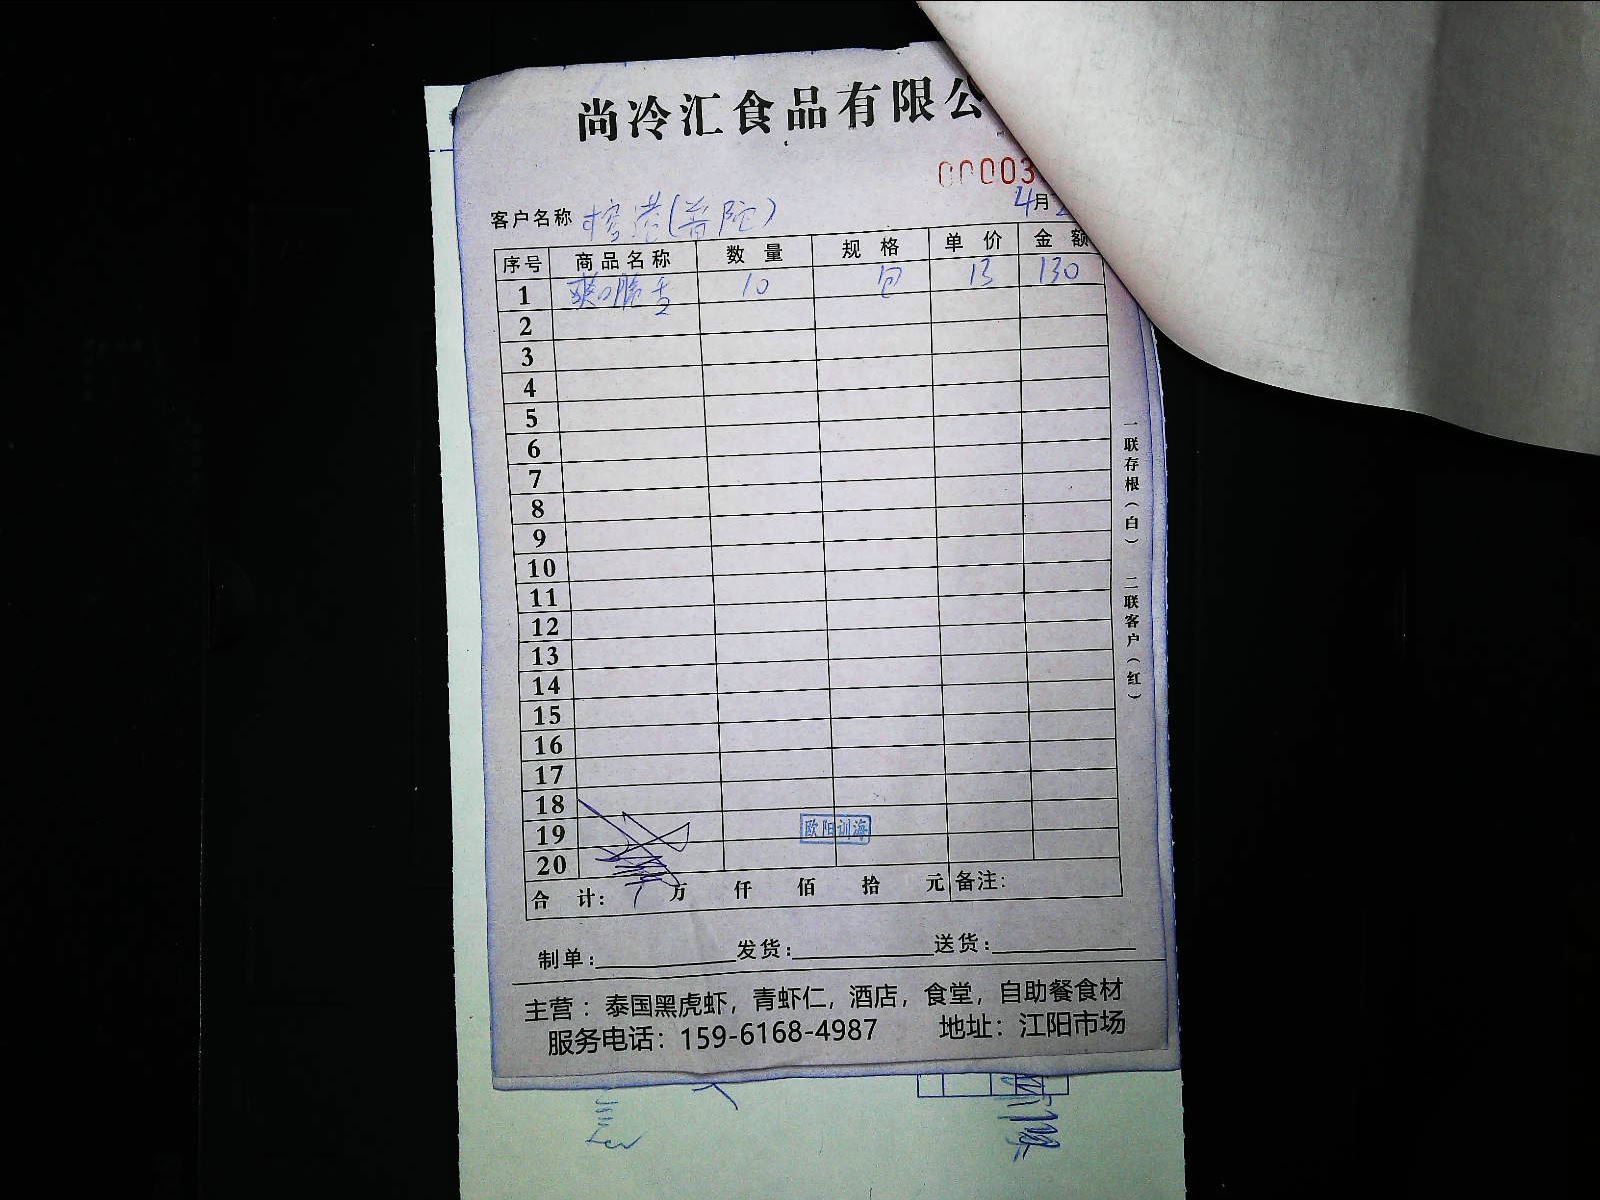 尚冷汇食品有限公
00003
客户名称 榕港(普陀) 4月
序号 商品名称 数量 规格 单价 金额
1 爽口脆舌 10 包 13 130
2
3
4
5
6
7
8
9
10
11
12
13
14
15
16
17
18
19 欧阳训海
20
合计: 万 仟 佰 拾 元 备注:
一联存根(白) 二联客户(红)
制单: 发货: 送货:
主营：泰国黑虎虾，青虾仁，酒店，食堂，自助餐食材
服务电话：159-6168-4987 地址：江阳市场